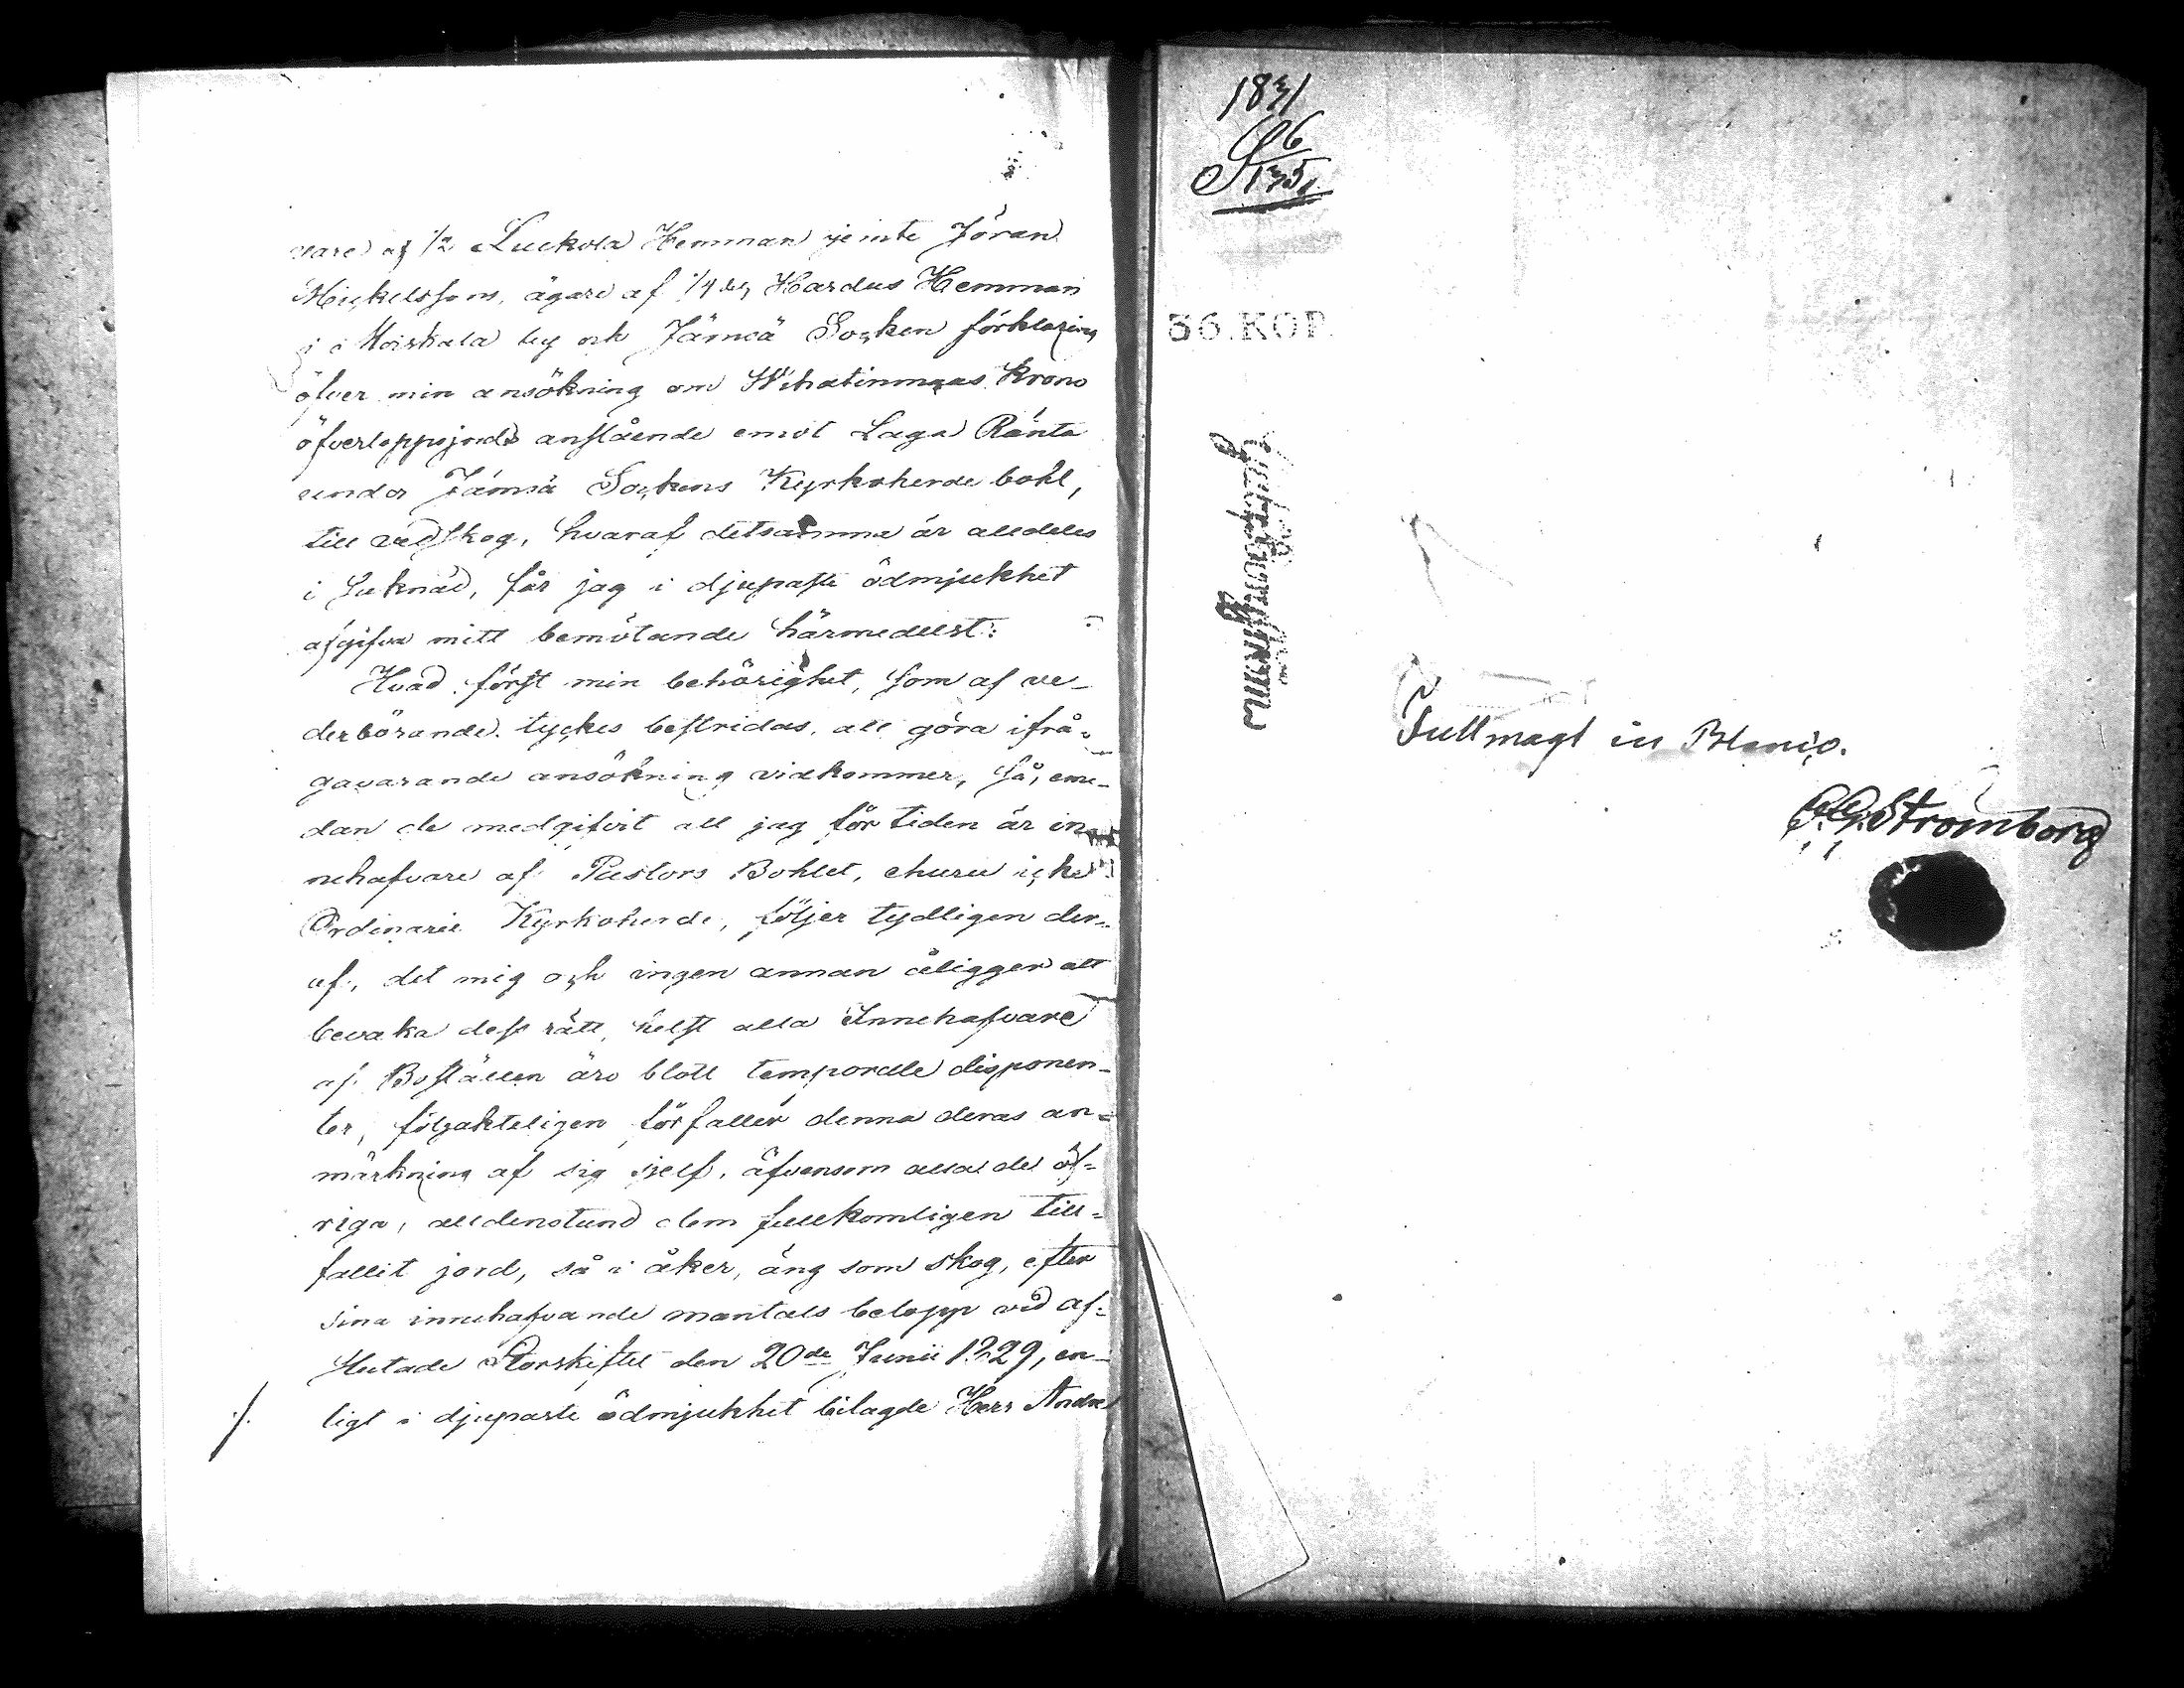 vare af 1/2 Luckola Hemman jemte Jöran
Mickelsson, ägare af 1/4 del Hardus Hemman
i Moiskala by och Jämsä Socken förklaring
öfver min ansökning om Wihatinmaas Krono
öfverloppsjords anslående emot Laga Ränta
under Jämsä Sockens Kyrkoherde bohl,
till vedskog, hvaraf detsamma är alldeles
i saknad, får jag i djupaste ödmjukhet
afgifva mitt bemötande härmedelst:
Hvad först min behörighet, som af ve-
derbörande tyckes bestridas, att göra ifrå-
gavarande ansökning vidkommer, så, eme-
dan de medgifvit att jag för tiden är in-
nehafvare af Pastors Bohlet, ehuru icke
Ordinarie Kyrkoherde, följer tydligen der-
af, det mig och ingen annan åligger att
bevaka dess rätt, helst alla Innehafvare
af Boställen äro blott temporelle disponen-
ter, följakteligen förfaller denna deras an-
märkning af sig sjelf, äfvensom alla de öf-
riga, alldenstund dem fullkomligen till-
fallit jord, så i åker, äng som skog, efter
sina innehafvande mantals belopp vid af-
slutade Storskiftet den 20de Junii 1829, en-
ligt i djupaste ödmjukhet bilagde Herr Andre
·/.
1831
S 6
135
36.KOP.
Fullmagt in Blanco.
Strömborg